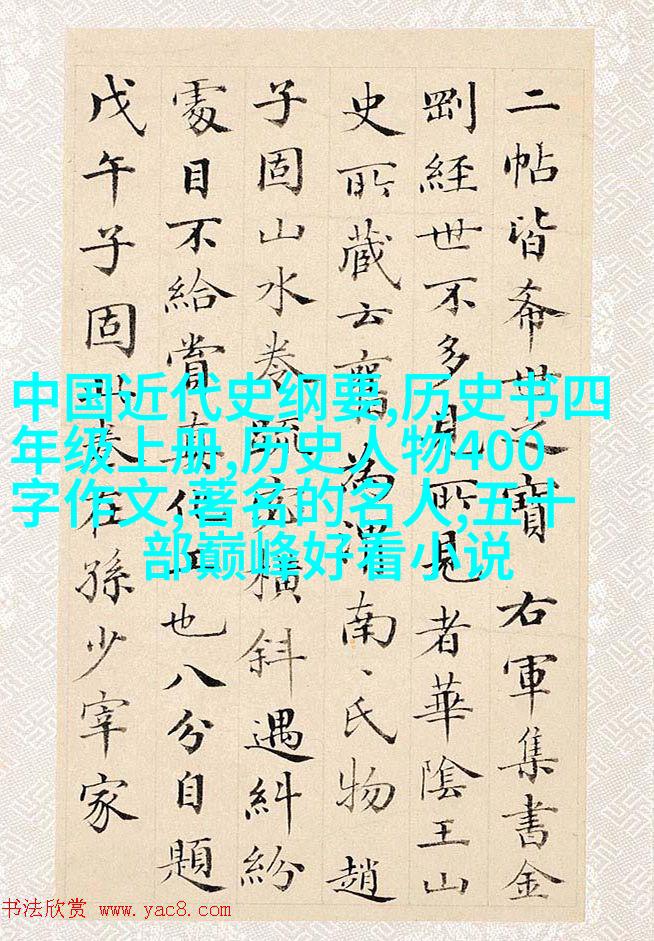 二帖皆希世之寶右軍集書金
剛經世不多見所見者華陰王山
史所藏云舊為渭南〻氏物趙
子固山水卷疏橫斜遇糾紛
處目不給賞真也八分自題
戊午子固此卷在孫少宰家
中国近代史纲要,历史书四
年级上册,历史人物400
字作文,著名的名人,五十
部巅峰好看小说
书法欣赏 www.yac8.com